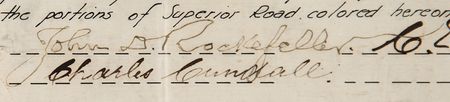 the portions of Superior Road colored hereon
John D. Rockefeller. C.E
Charles Cundall.